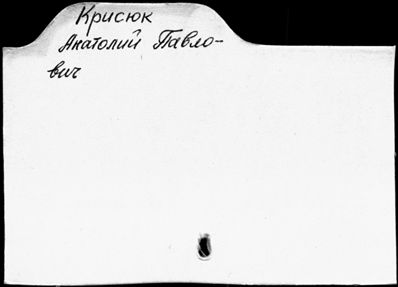 Крисюк
Анатолий Павло-
вич